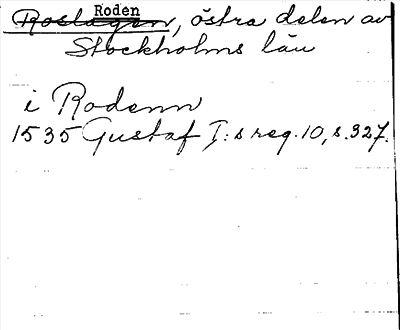 Roden
Roslagen, östra delen av
Stockholms län
i Rodenn
1535 Gustaf I:s reg. 10, s. 327.